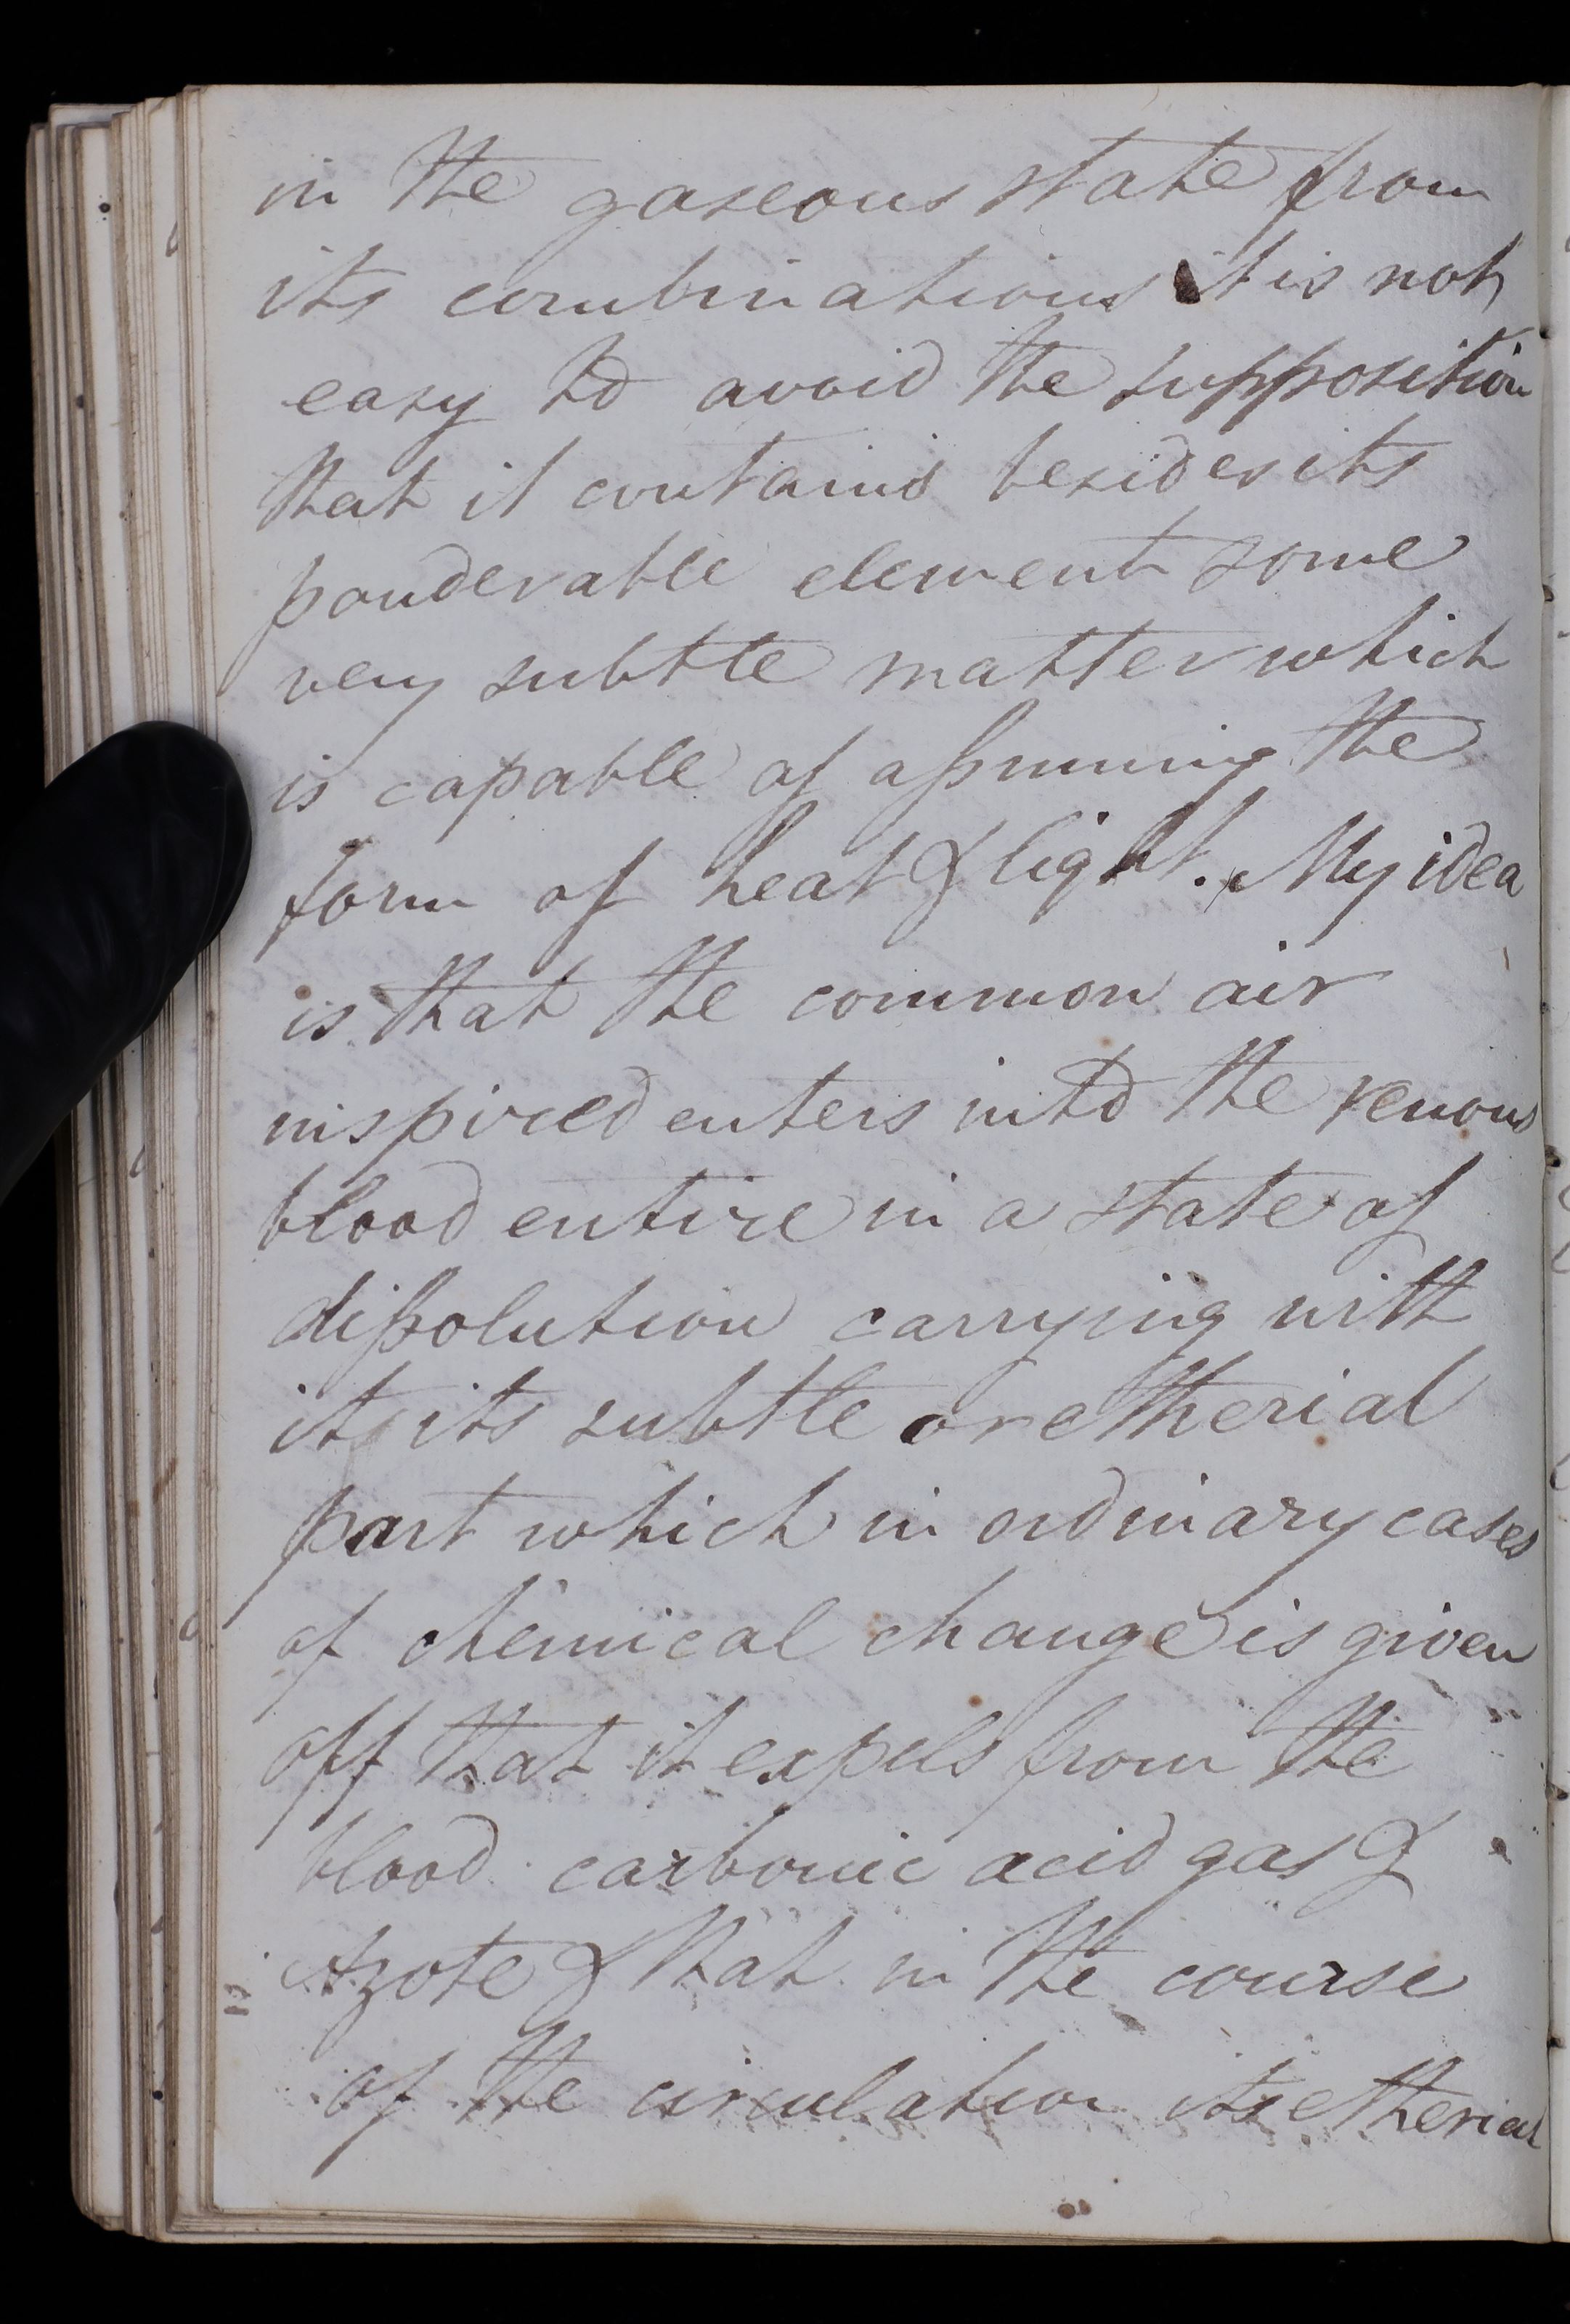 in the gaseous state from
its combinations it is not
easy to avoid the supposition
that it contains besides its
ponderable element some
very subtle matter which
is capable of assuming the
form of heat & light. My idea
is that the common air
inspired enters into the venous
blood entire in a state of
dissolution carrying with
it its subtle or etherial
part which in ordinary cases
of chemical change is given
off that it expels from the
blood carbonic acid gas &
Azote & that in the course
of the circulation its etherial